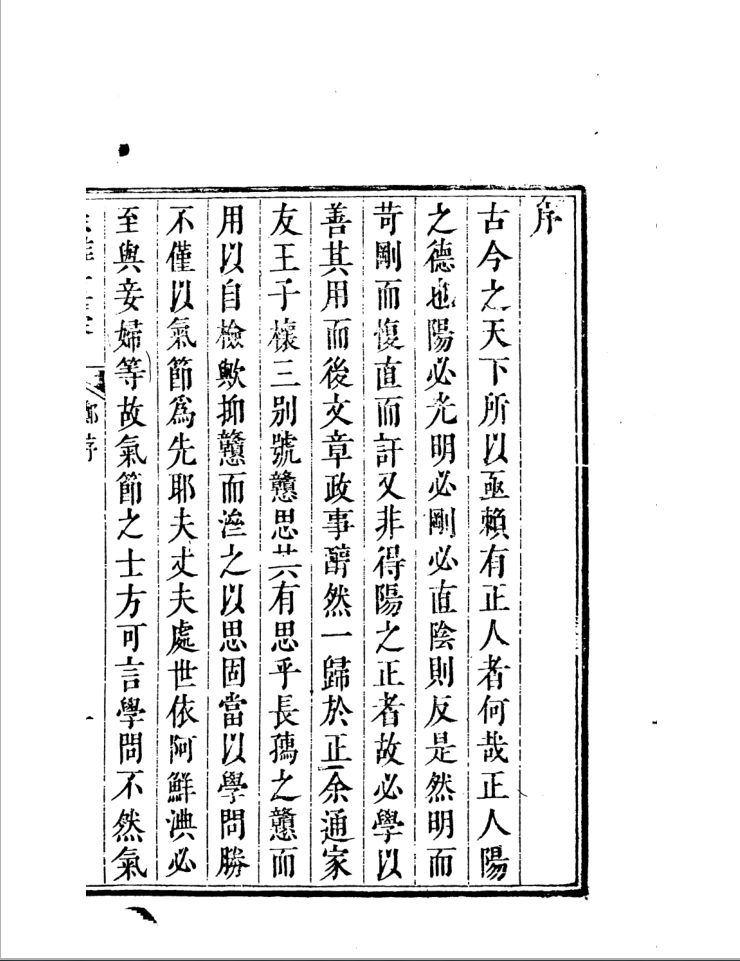 序
古今之天下所以亟賴有正人者何哉正人陽
之德也陽必光明必剛必直陰則反是然明而
苛剛而愎直而訐又非得陽之正者故必學以
善其用而後文章政事辭然一歸於正余通家
友王子欀三別號戇思其有思乎長孺之戇而
用以自檢歟抑戇而濟之以思固當以學問勝
不僅以氣節為先耶夫丈夫處世依阿鮮淟必
至與妾婦等故氣節之士方可言學問不然氣
鄭序
一